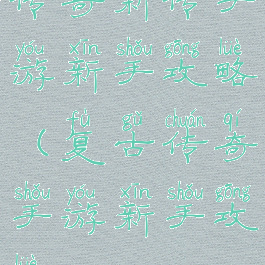 传奇新传手
yóu xīn shǒu gōng lüè
游新手攻略
fù gǔ chuán qí
（复古传奇
shǒu yóu xīn shǒu gōng
手游新手攻
lüè